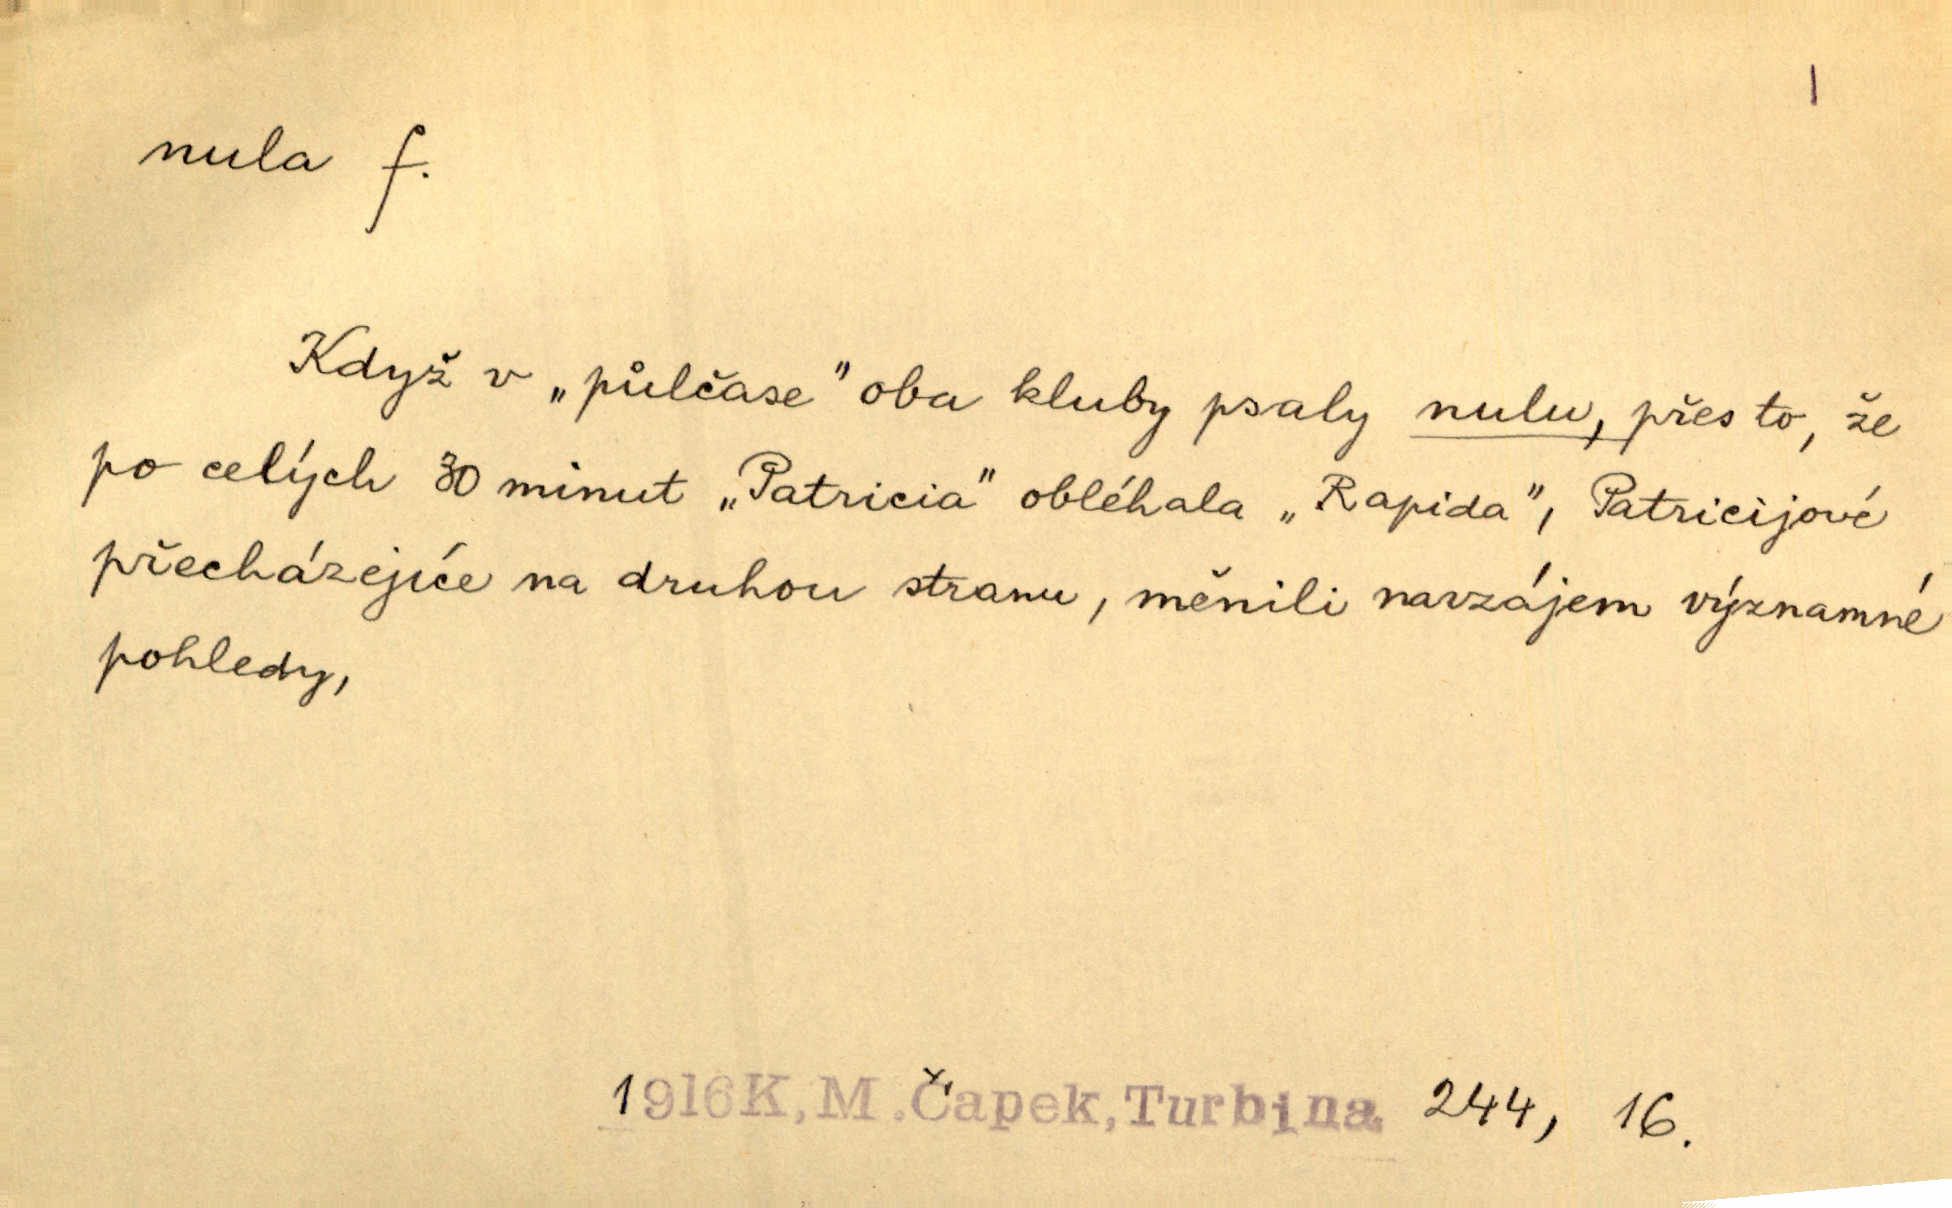 |
nula f.
Když v „půlčase" oba kluby psaly nulu, přes to, že
po celých 30 minut „Patricia" obléhala „Rapida", Patricijové
přecházejíce na druhou stranu, měnili navzájem významné
pohledy,
1916K, M. Čapek, Turbina 244, 16.